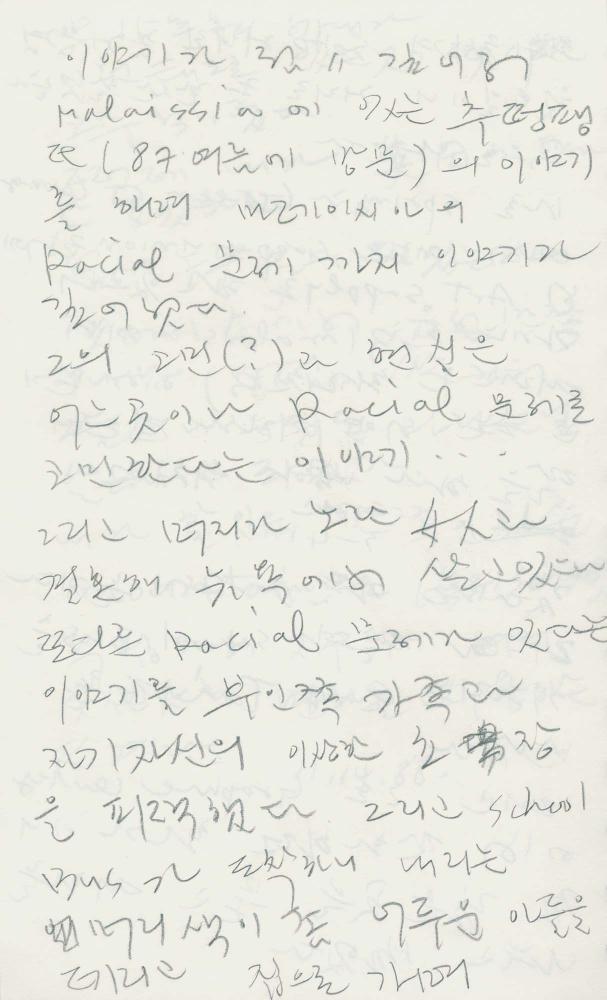 이야기가 길 〃 깊어져
Malaissia 에 있는 추펑팽
뗴 ( 87 여름에 방문 ) 의 이야기
를 하며 마레이시아의
Racial 문제 까지 이야기가
깊어 졌다.
그의 고민(?)과 현실은
어느곳이나 Racial 문제로
고민한다는 이야기 . . .
그리고 머리가 노란 女人과
결혼해 뉴욕에서 살고있는
또다른 Racial 문제가 있다는
이야기를 부인쪽 가족과
자기자신의 입장
을 피력했다. 그리고 school
Bus 가 도착하니 내리는
머리 색이 좀 어두운 아들을
데리고 집으로 가며